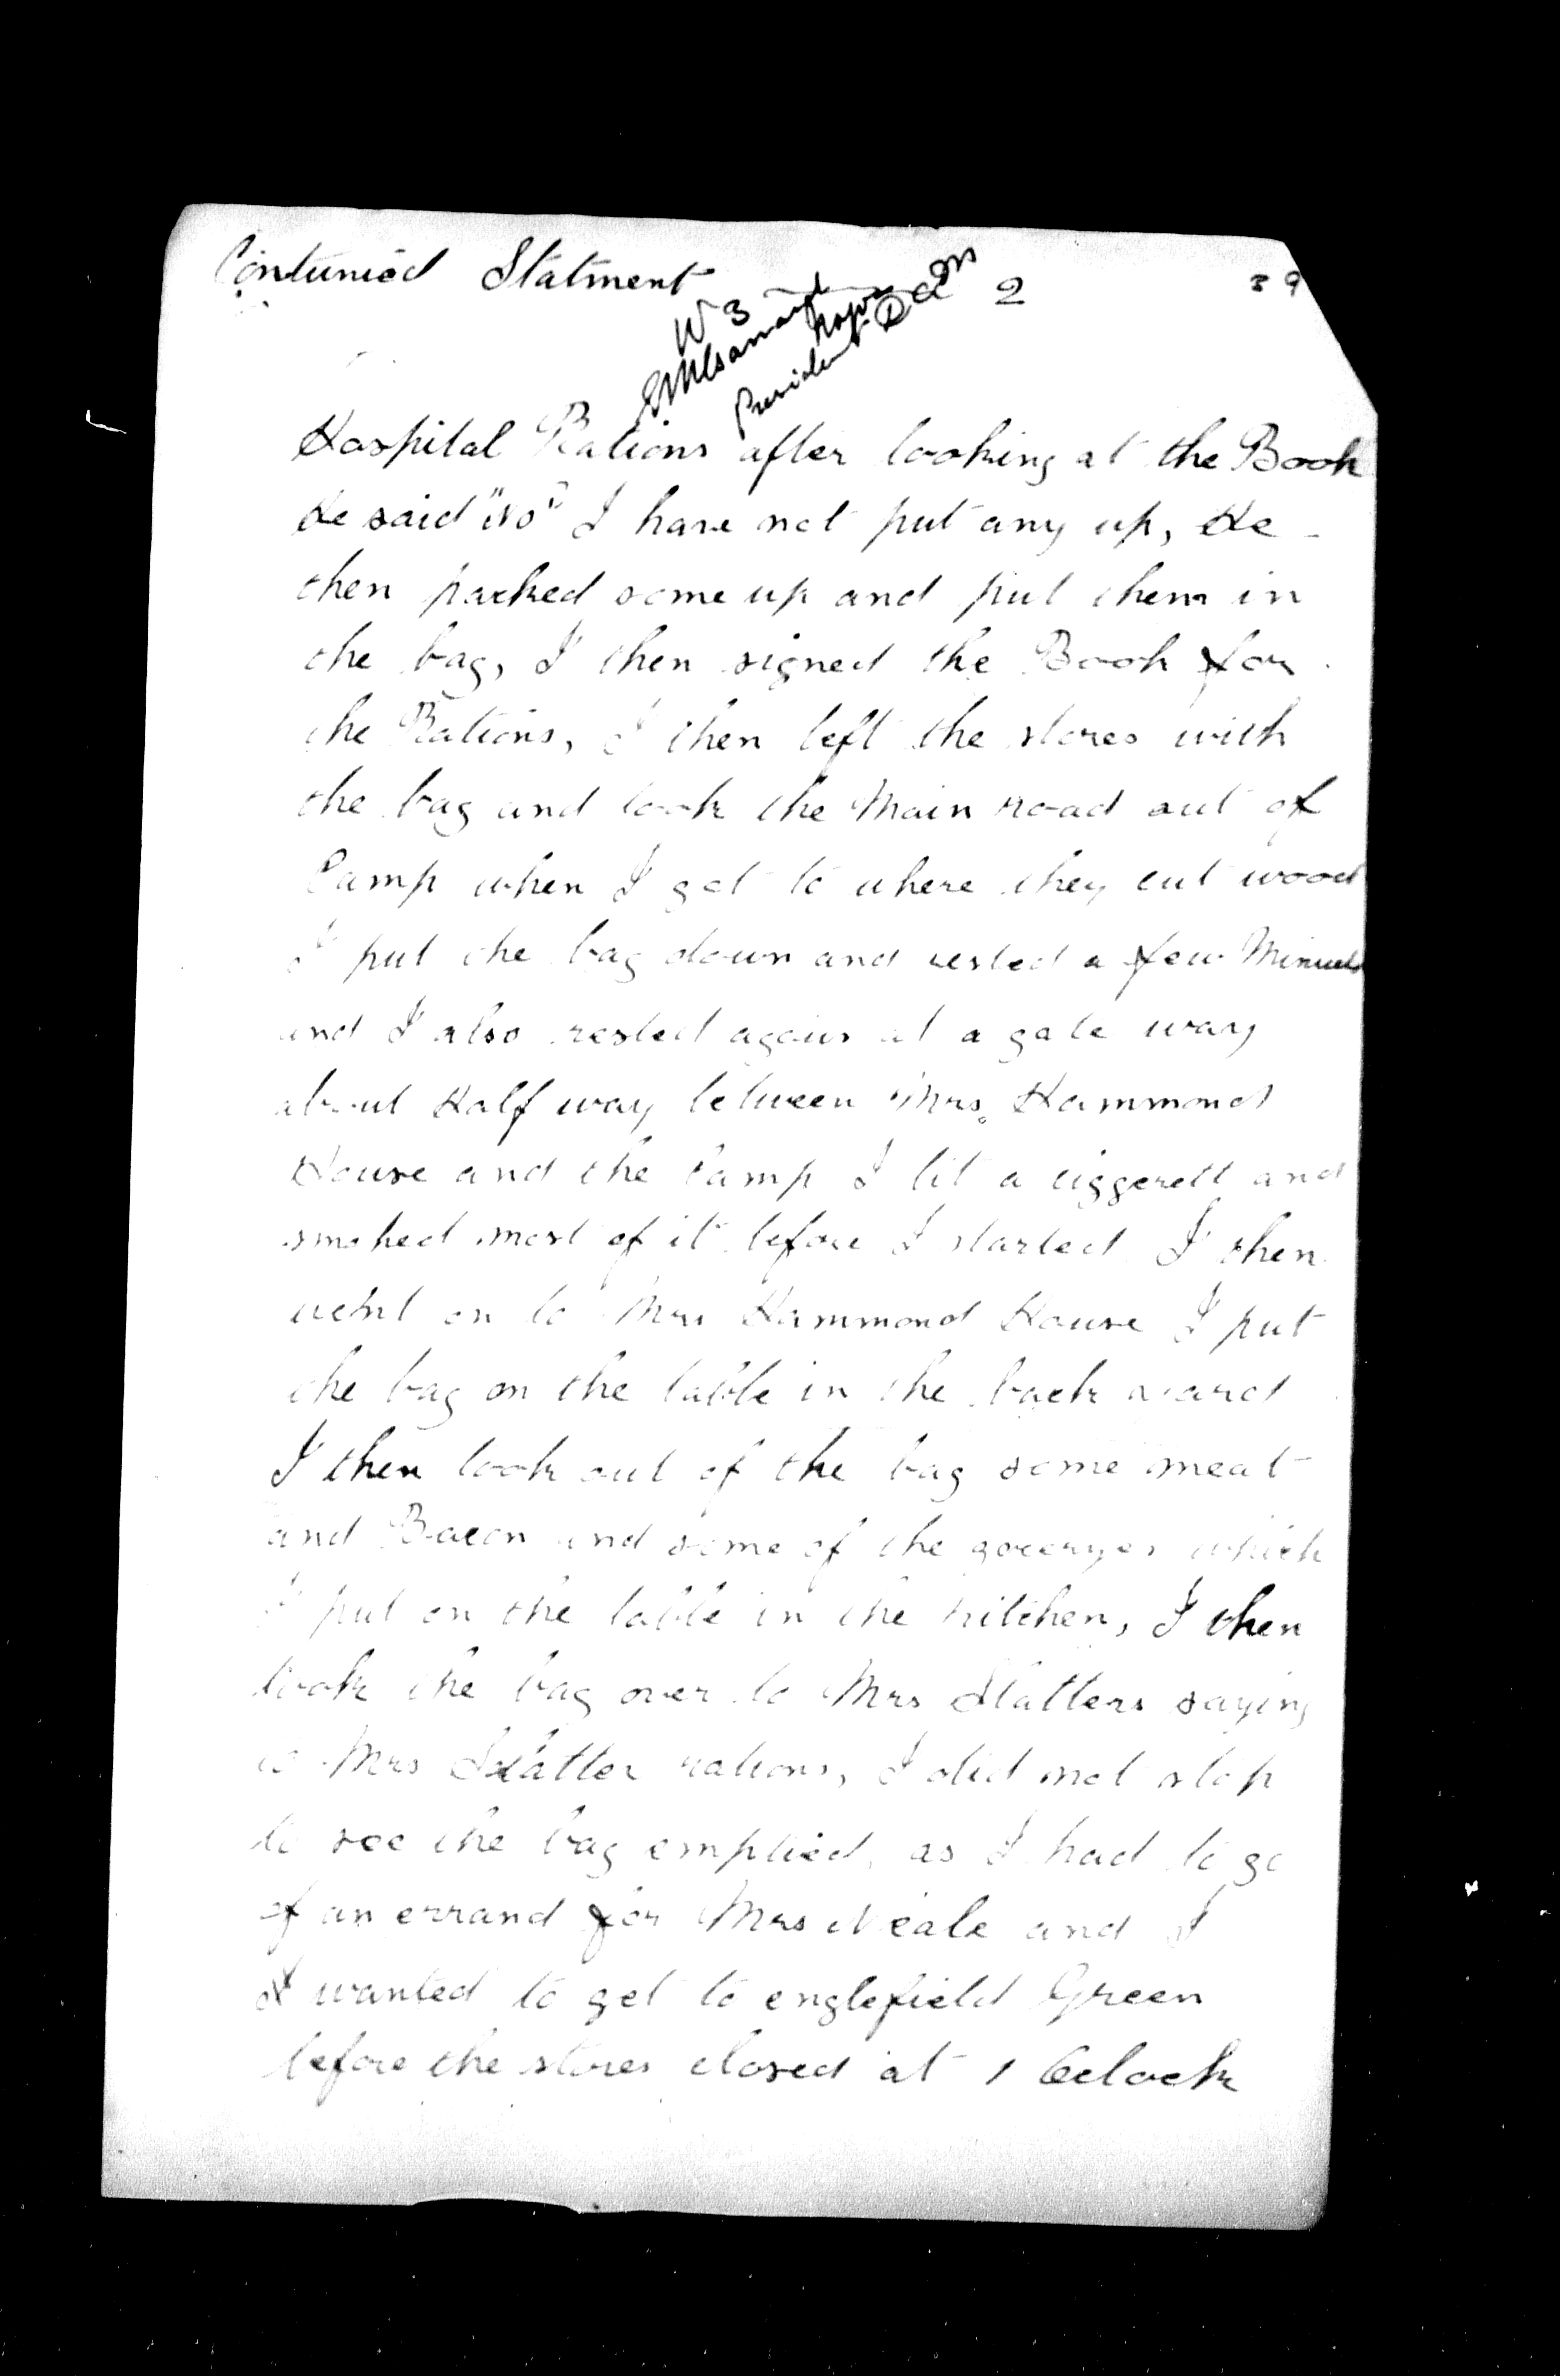 Contunied Statment
2
39
W 3
President DCM
Hospital Rations after looking at the Book
He said "No" I have not put any up, He
then packed some up and put them in
the bag, I then signed the Book for
the Rations, I then left the stores with
the bag and took the Main road out of
Camp when I got to where they cut wood
I put the bag down and rested a few Minuets
and I also rested again at a gate way
about Half way between Mrs. Hammond
House and the Camp I lit a ciggerett and
smoked most of it before I started I then
went on to Mrs Hammond House I put
the bag on the table in the back yard
I then took out of the bag some meat
and Bacon and some of the grocerys which
I put on the table in the kitchen, I then
took the bag over to Mrs Slatters saying
is Mrs Slatter rations, I did not stop
to see the bag emptied, as I had to go
of an errand for Mrs Neale and I
I wanted to get to englefield Green
before the stores closed at 1 Oclock